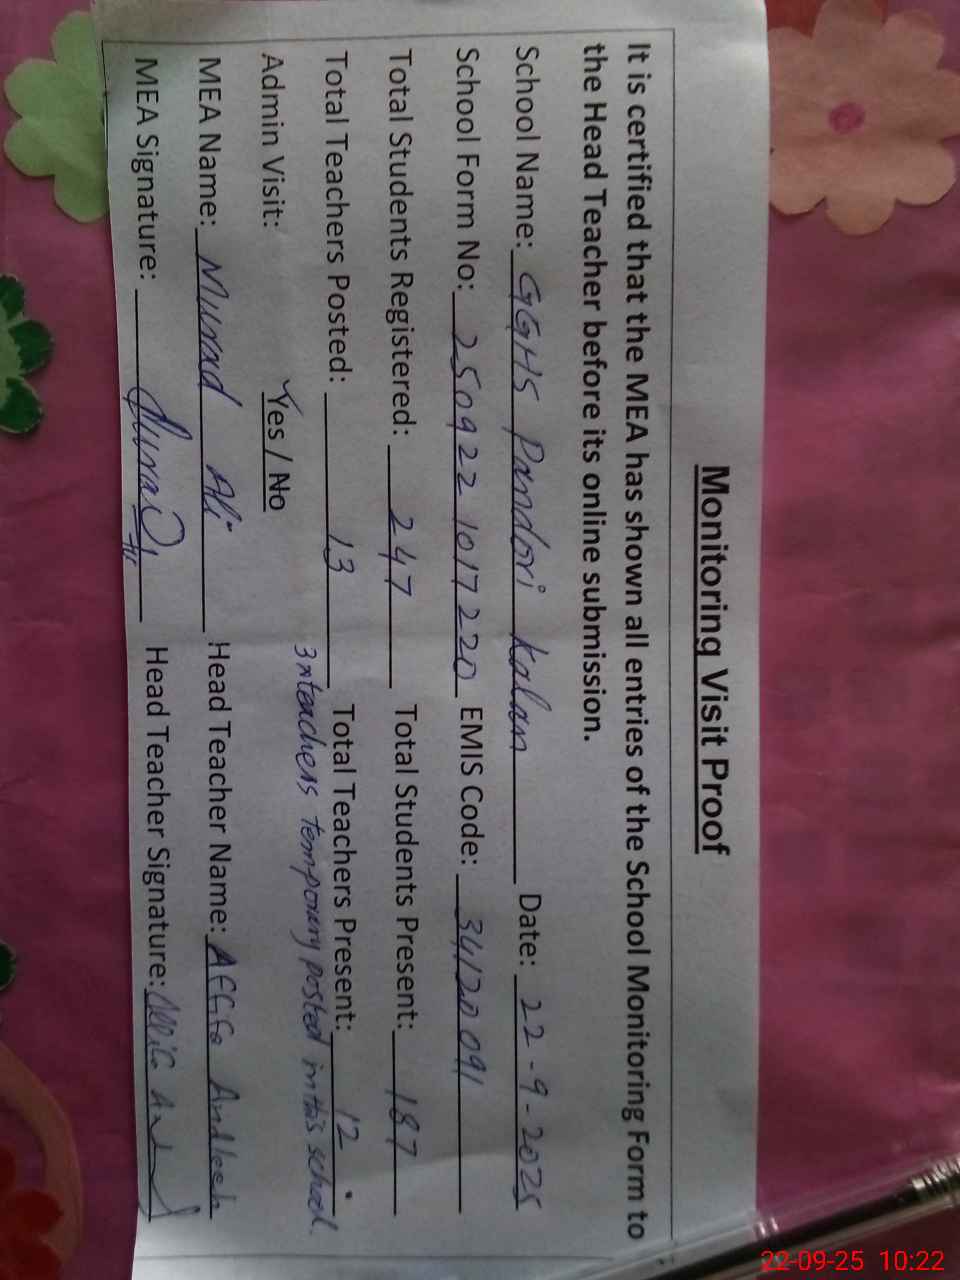 Monitoring Visit Proof
It is certified that the MEA has shown all entries of the School Monitoring Form to
the Head Teacher before its online submission.
School Name: GGHS Pandori Kalan Date: 22-9-2025
School Form No: 250922 1017220 EMIS Code: 34120091
Total Students Registered: 247 Total Students Present: 187
Total Teachers Posted: 13 Total Teachers Present: 12
Admin Visit: Yes / No 3 teachers temporary posted in this school.
MEA Name: Murad Ali Head Teacher Name: Afifa
MEA Signature: Head Teacher Signature:
22-09-25 10:22